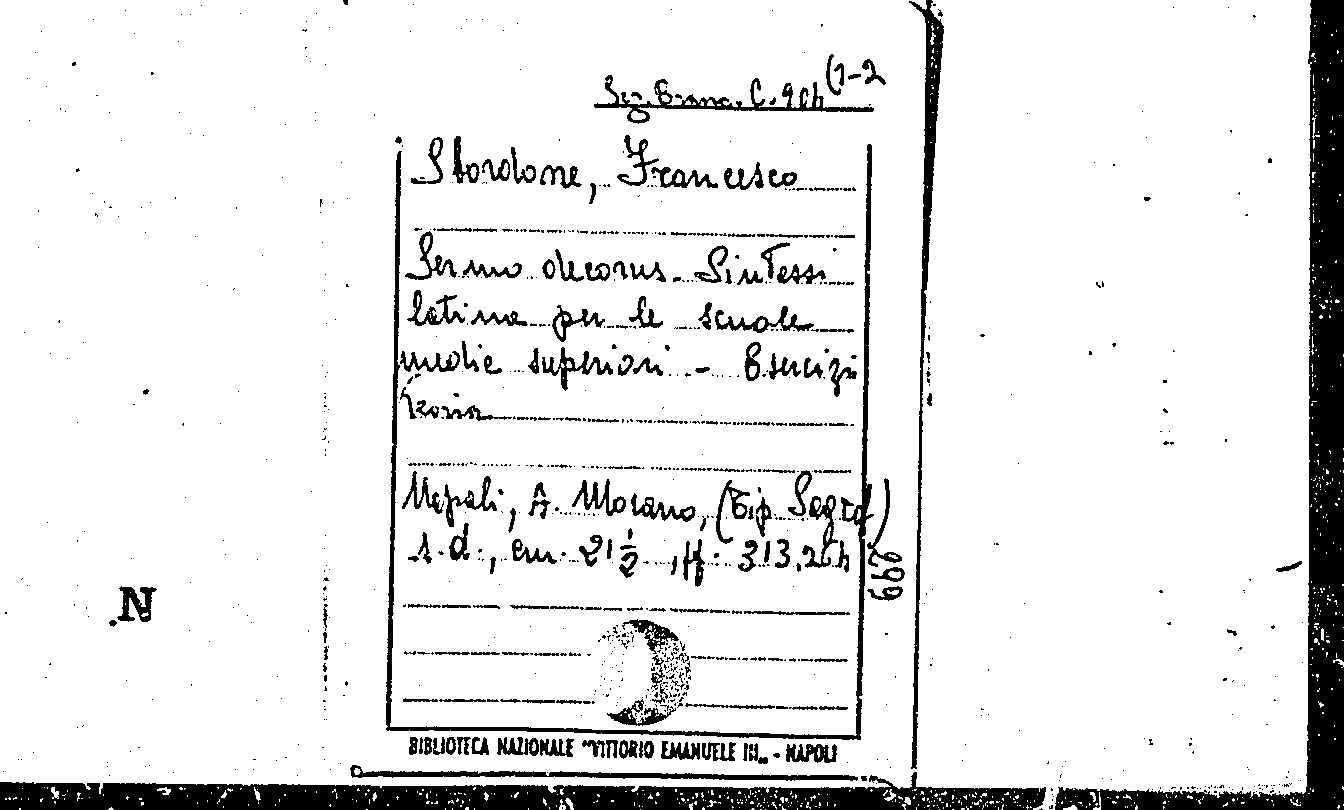 Sez. Branc. C. 904 (1-2
Sbordone, Francesco
Sermo decorus. Sintassi
latina per le scuole
medie superiori - Esercizi
Teoria
Napoli, A. Morano, (Tip Sagraf)
s.d., cm. 21 1/2, ff. 313, 264
N.
BIBLIOTECA NAZIONALE "VITTORIO EMANUELE III„ - NAPOLI